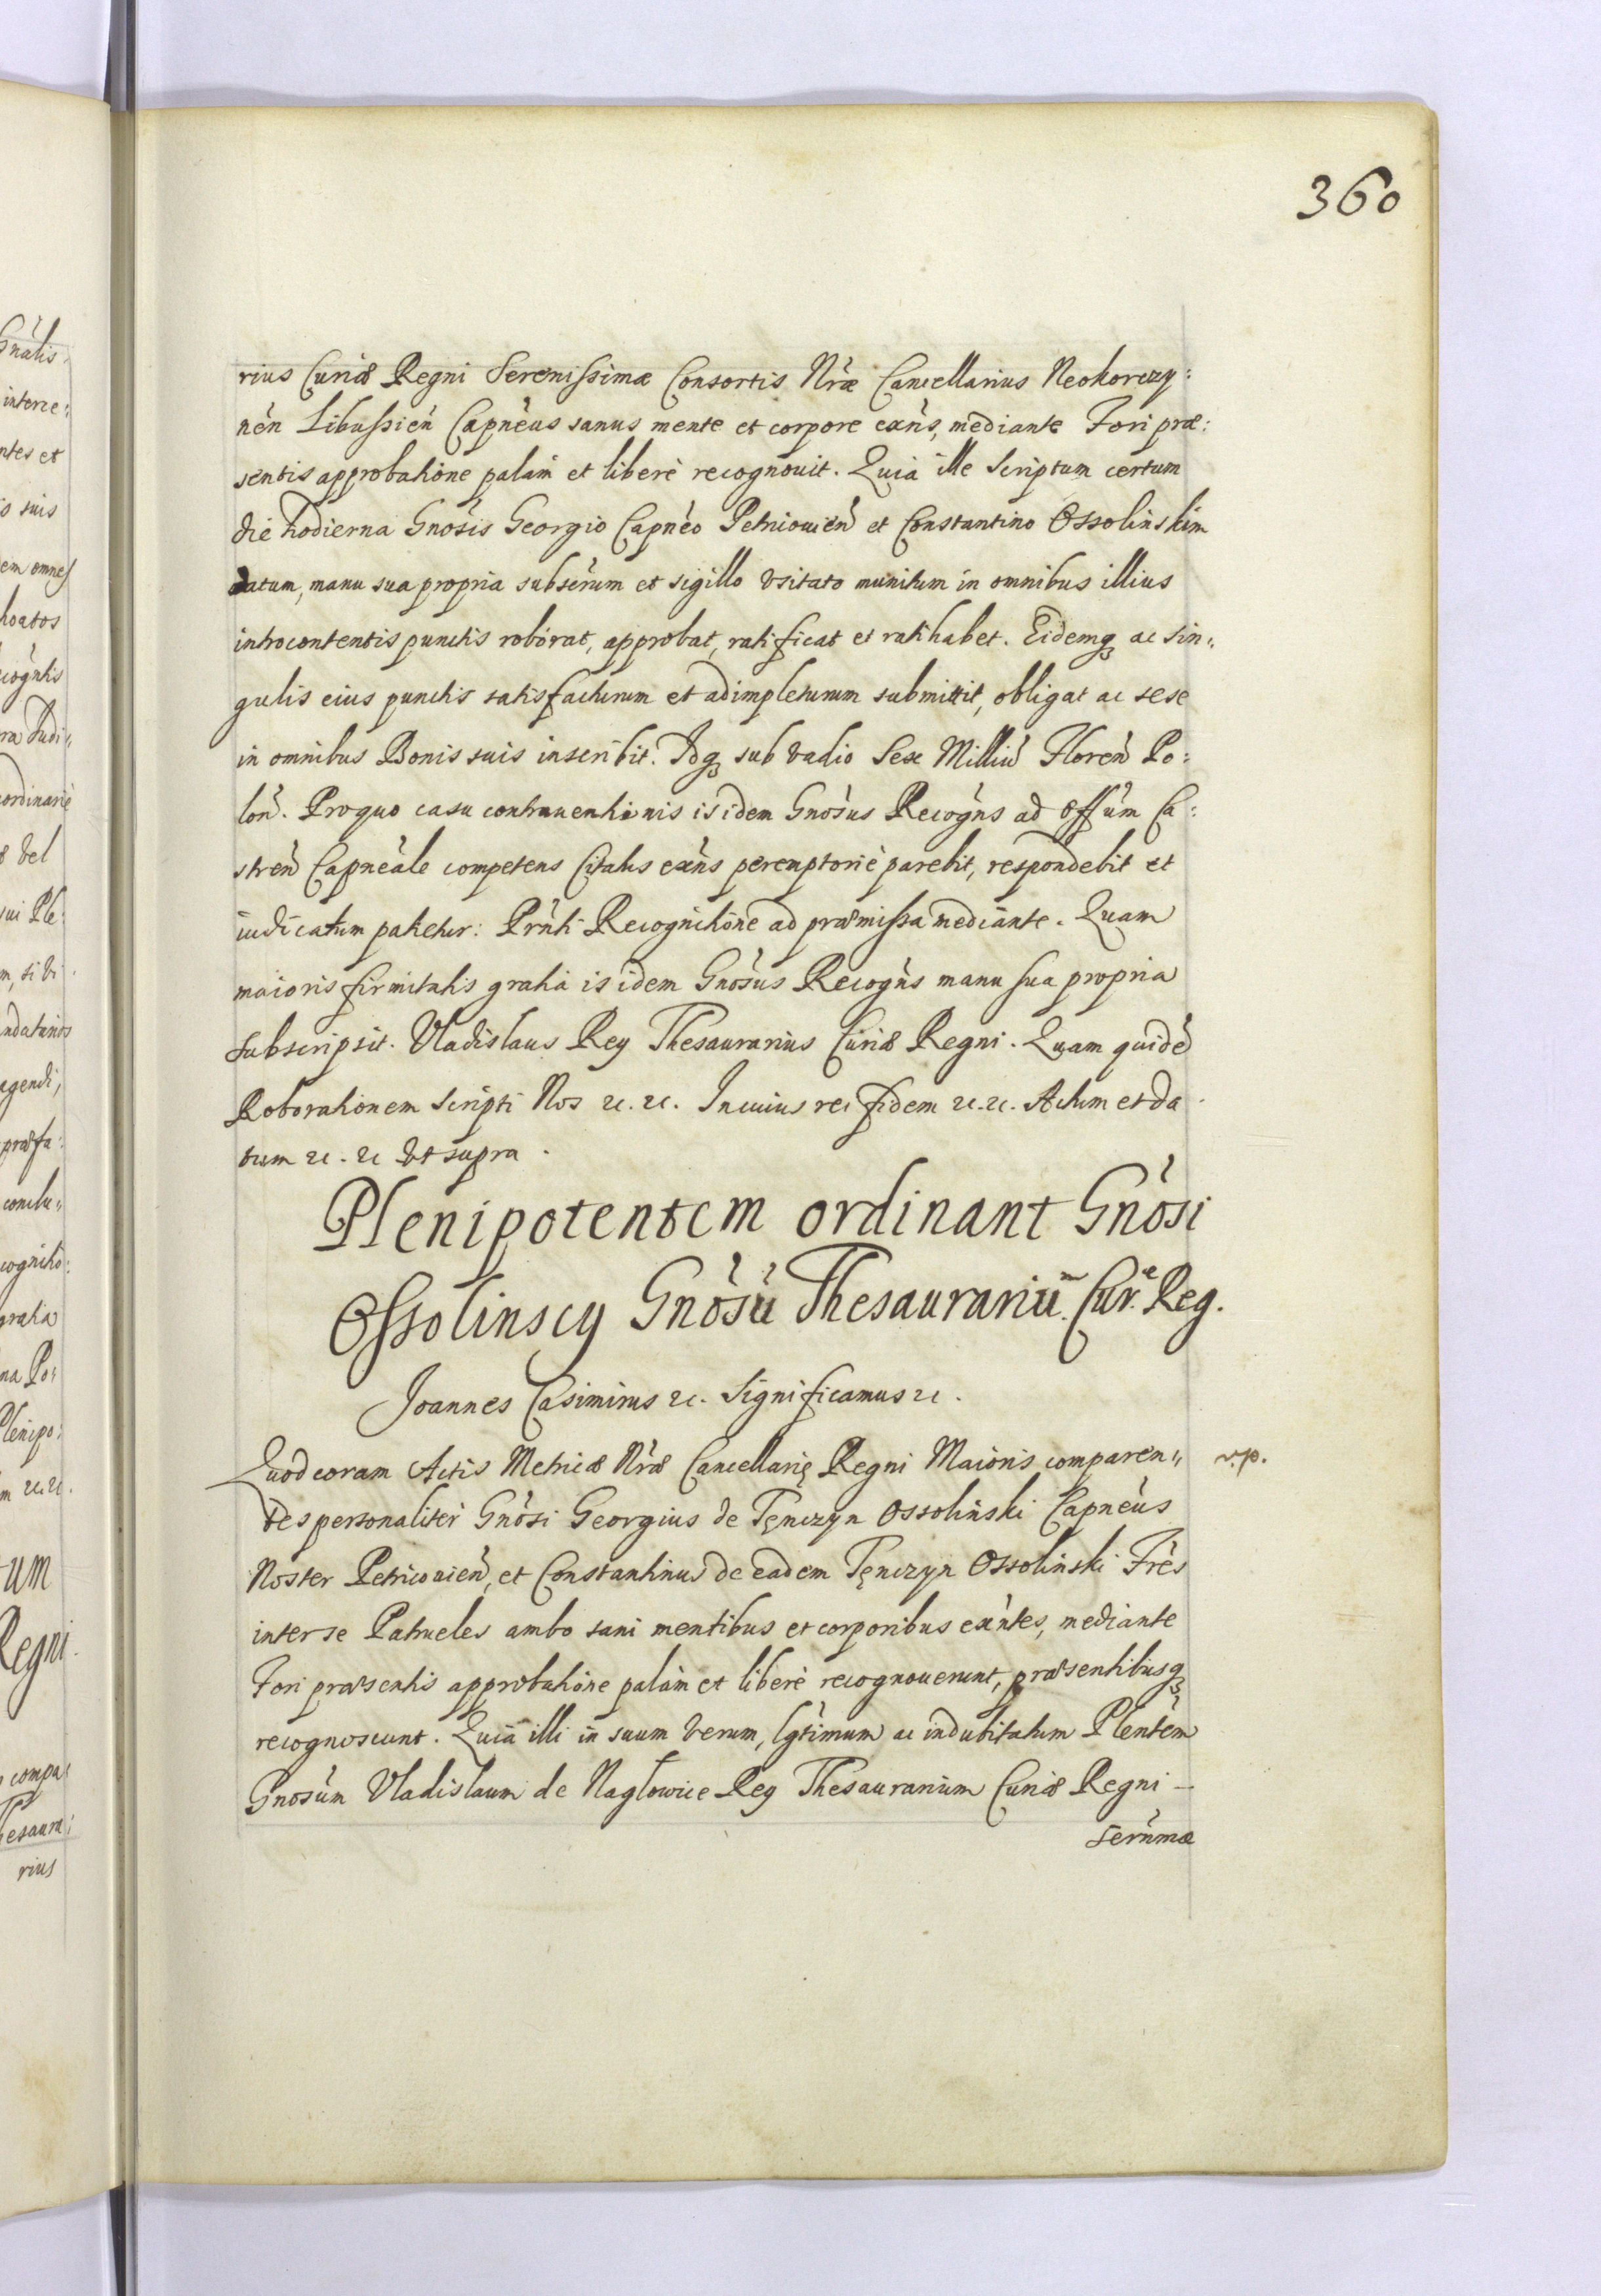 360
rius Curiæ Regni Serenissimæ Consortis Nræ Cancellarius Neokorczy:
nen̄ Libussien̄ Capneus sanus mente et corpore exn̄s, mediante Fori præ:
sentis approbatione palam et liberè recognouit. Quia ille Scriptum certum
die hodierna Gnosis Georgio Capneo Petriouien̄ et Constantino Ossolinskim
datum, manu sua propria subscrum et sigillo vsitato munitum in omnibus illius
introcontentis punctis roborat, approbat, ratificat et ratihabet. Eidemq3 ac sin„
gulis eius punctis satisfacturum et adimpleturum submittit, obligat ac sese
in omnibus Bonis suis inscribit. Idq3 sub vadio Sex Milliū Floren̄ Po:
lon̄. Pro quo casu contrauentionis is idem Gnosus Recogn̄s ad Offum Ca:
stren̄ Capneale competens Citatus exn̄s peremptoriè parebit, respondebit et
iudicatum patietur: Prn̄ti Recognitione ad præmissa mediante. Quam
maioris firmitatis gratia is idem Gnosus Recogn̄s manu sua propria
subscripsit. Vladislaus Rey Thesaurarius Curiæ Regni. Quam quidē
Roborationem scripti Nos &c. &c. In cuius rei fidem &c. &c. Actum et da
tum &c. &c vt supra.
Plenipotentem ordinant Gnosi
Ossolinscy Gnosū Thesaurariū Cur. Reg.
Joannes Casimirus &c. Significamus &c.
Quod coram Actis Metricæ Nræ Cancellarię Regni Maioris comparen„
v.p.
tes personaliter Gnosi Georgius de Tęnczyn Ossoliński Capneus
Noster Petricouien̄, et Constantinus de eadem Tęnczyn Ossoliński Fres
inter se Patrueles ambo sani mentibus et corporibus exn̄tes, mediante
Fori præsentis approbatione palam et liberè recognouerunt, præsentibusq3
recognoscunt. Quia illi in suum verum, lgtimum ac indubitatum Plentem
Gnosum Vladislaum de Nagłowice Rey Thesaurarium Curiæ Regni –
Sern̄mæ